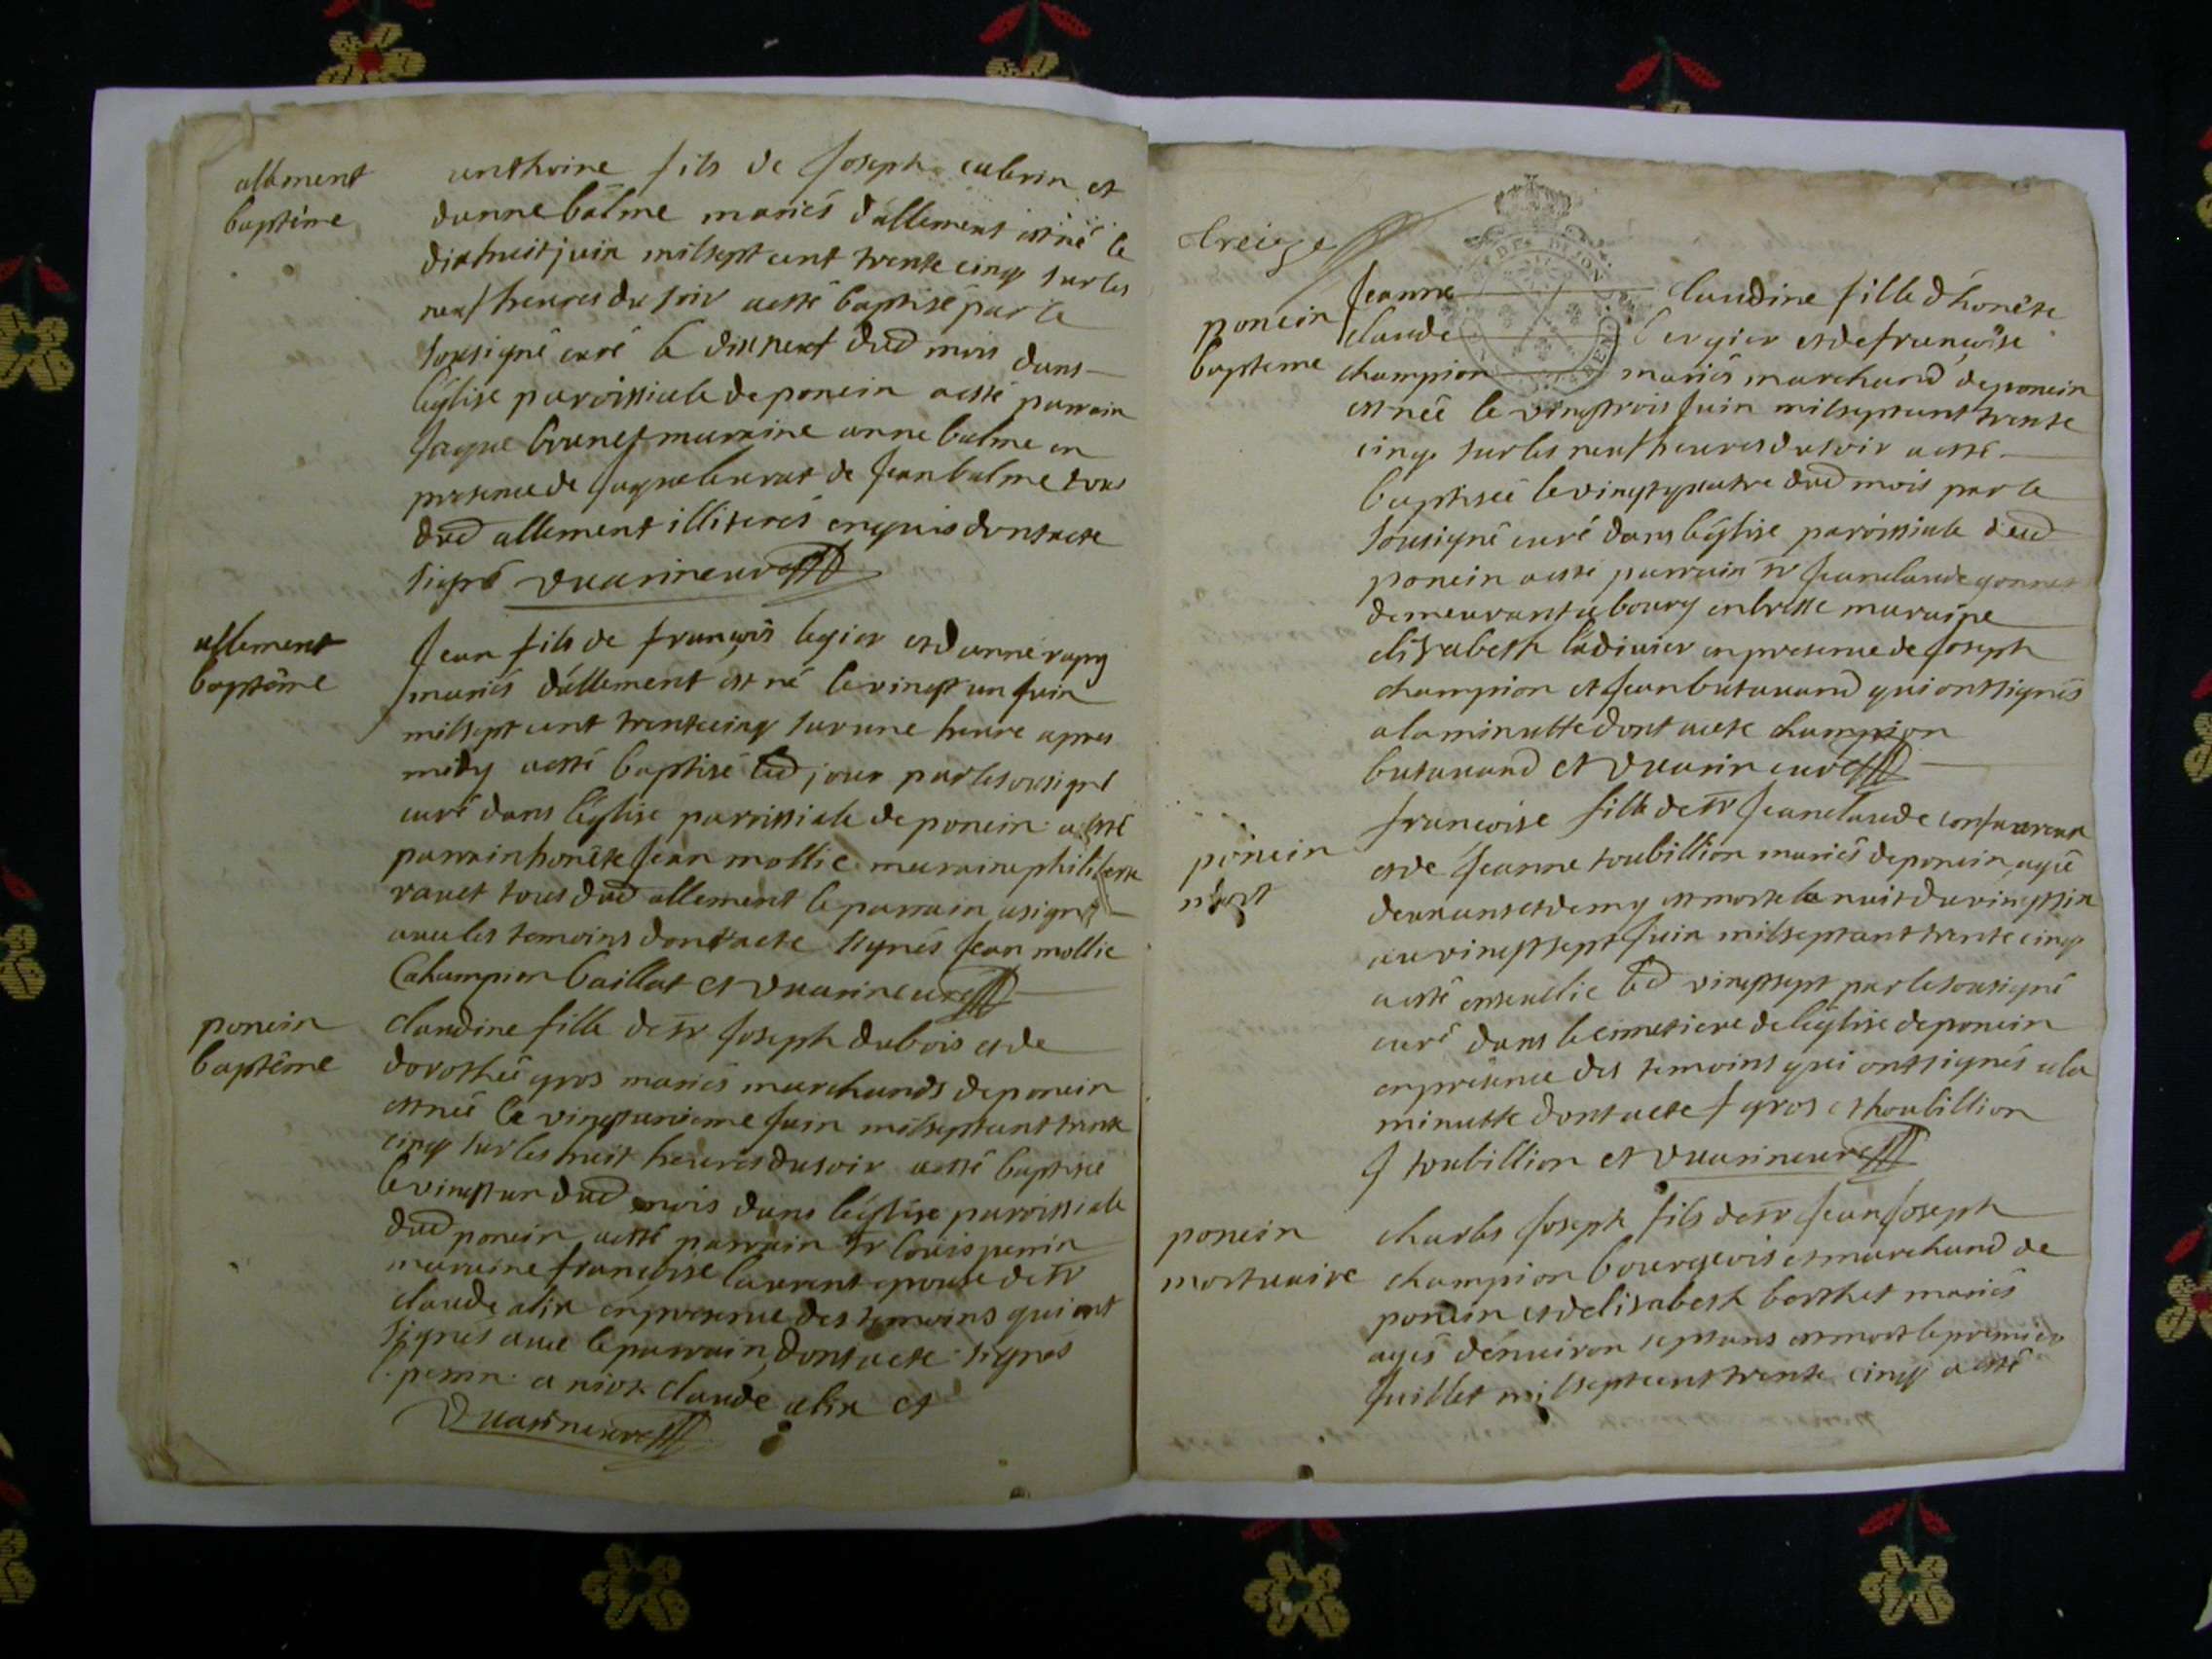 allement
baptême
anthoine fils de Joseph cabrin et
danne balme mariés dallement est né le
dixhuit juin milsept cent trente cinq sur les
neuf heures du soir a esté baptisé par le
sousigné curé le dixneuf dud mois dans
léglise paroissiale de poncin a esté parrain
Jaque brunet marraine anne balme en
presence de Jaque de Jean balme tous
dud allement illiterés enquis dont acte
signé vuarin curé
allement
baptême
Jean fils de françois legier et danne rapy
mariés dallement est né le vingt un Juin
milsept cent trente cinq sur une heure apres
midy a esté baptisé led jour par le sousigné
curé dans léglise parrissiale de poncin a esté
parrain honête Jean mollie marraine philiberte
ravet tous dud allement le parrain a signé
avec les temoins dont acte signés Jean mollie
Champion baillat et vuarin curé
poncin
baptême
claudine fille de sr Joseph dubois et de
dorothée gros mariés marchands de poncin
est née le vingtunieme Juin milsept cent trente
cinq sur les huit heures du soir a esté baptisée
le vingt un dud mois dans léglise paroissiale
dud poncin a esté parrain sr loüis perrin
maraine françoise laurent epouse de sr
claude alix en presence des temoins qui ont
signés avec le parrain dont acte signés
perrin a niot claude alix et
vuarin curé
treize
poncin
bapteme
Jeanne claudine fille dhonête
claude legier et de françoise
champion mariés marchand de poncin
est née le vingtrois Juin milsept cent trente
cinq sur les neuf heures du soir a esté
baptisée le vingtquatre dud mois par le
sousigné curé dans léglise paroissiale dud
poncin a esté parrain sr Jean claude gonnet
demeurant a bourg en bresse maraine
elisabeth ladivier en presence de Joseph
champion et Jean butavand qui ont signés
a la minutte dont acte champion
butavand et vuarin curé
poncin
mort
françoise fille de sr Jean claude
et de Jeanne toubillion mariés de poncin agée
deux ans et demy est morte la nuit du vingt six
au vingt sept Juin milsept cent trente cinq
a esté ensevellie led vingtsept par le sousigné
curé dans le cimetiere de léglise de poncin
en presence des temoins qui ont signés a la
minutte dont acte f gros c thoubillion
J toubillion et vuarin curé
poncin
mortuaire
charles Joseph fils de sr Jean Joseph
champion bourgeois et marchand de
poncin et delisabeth berthet mariés
agés dénuiron sept ans est mort le premier
Juillet mil sept cent trente cinq a esté